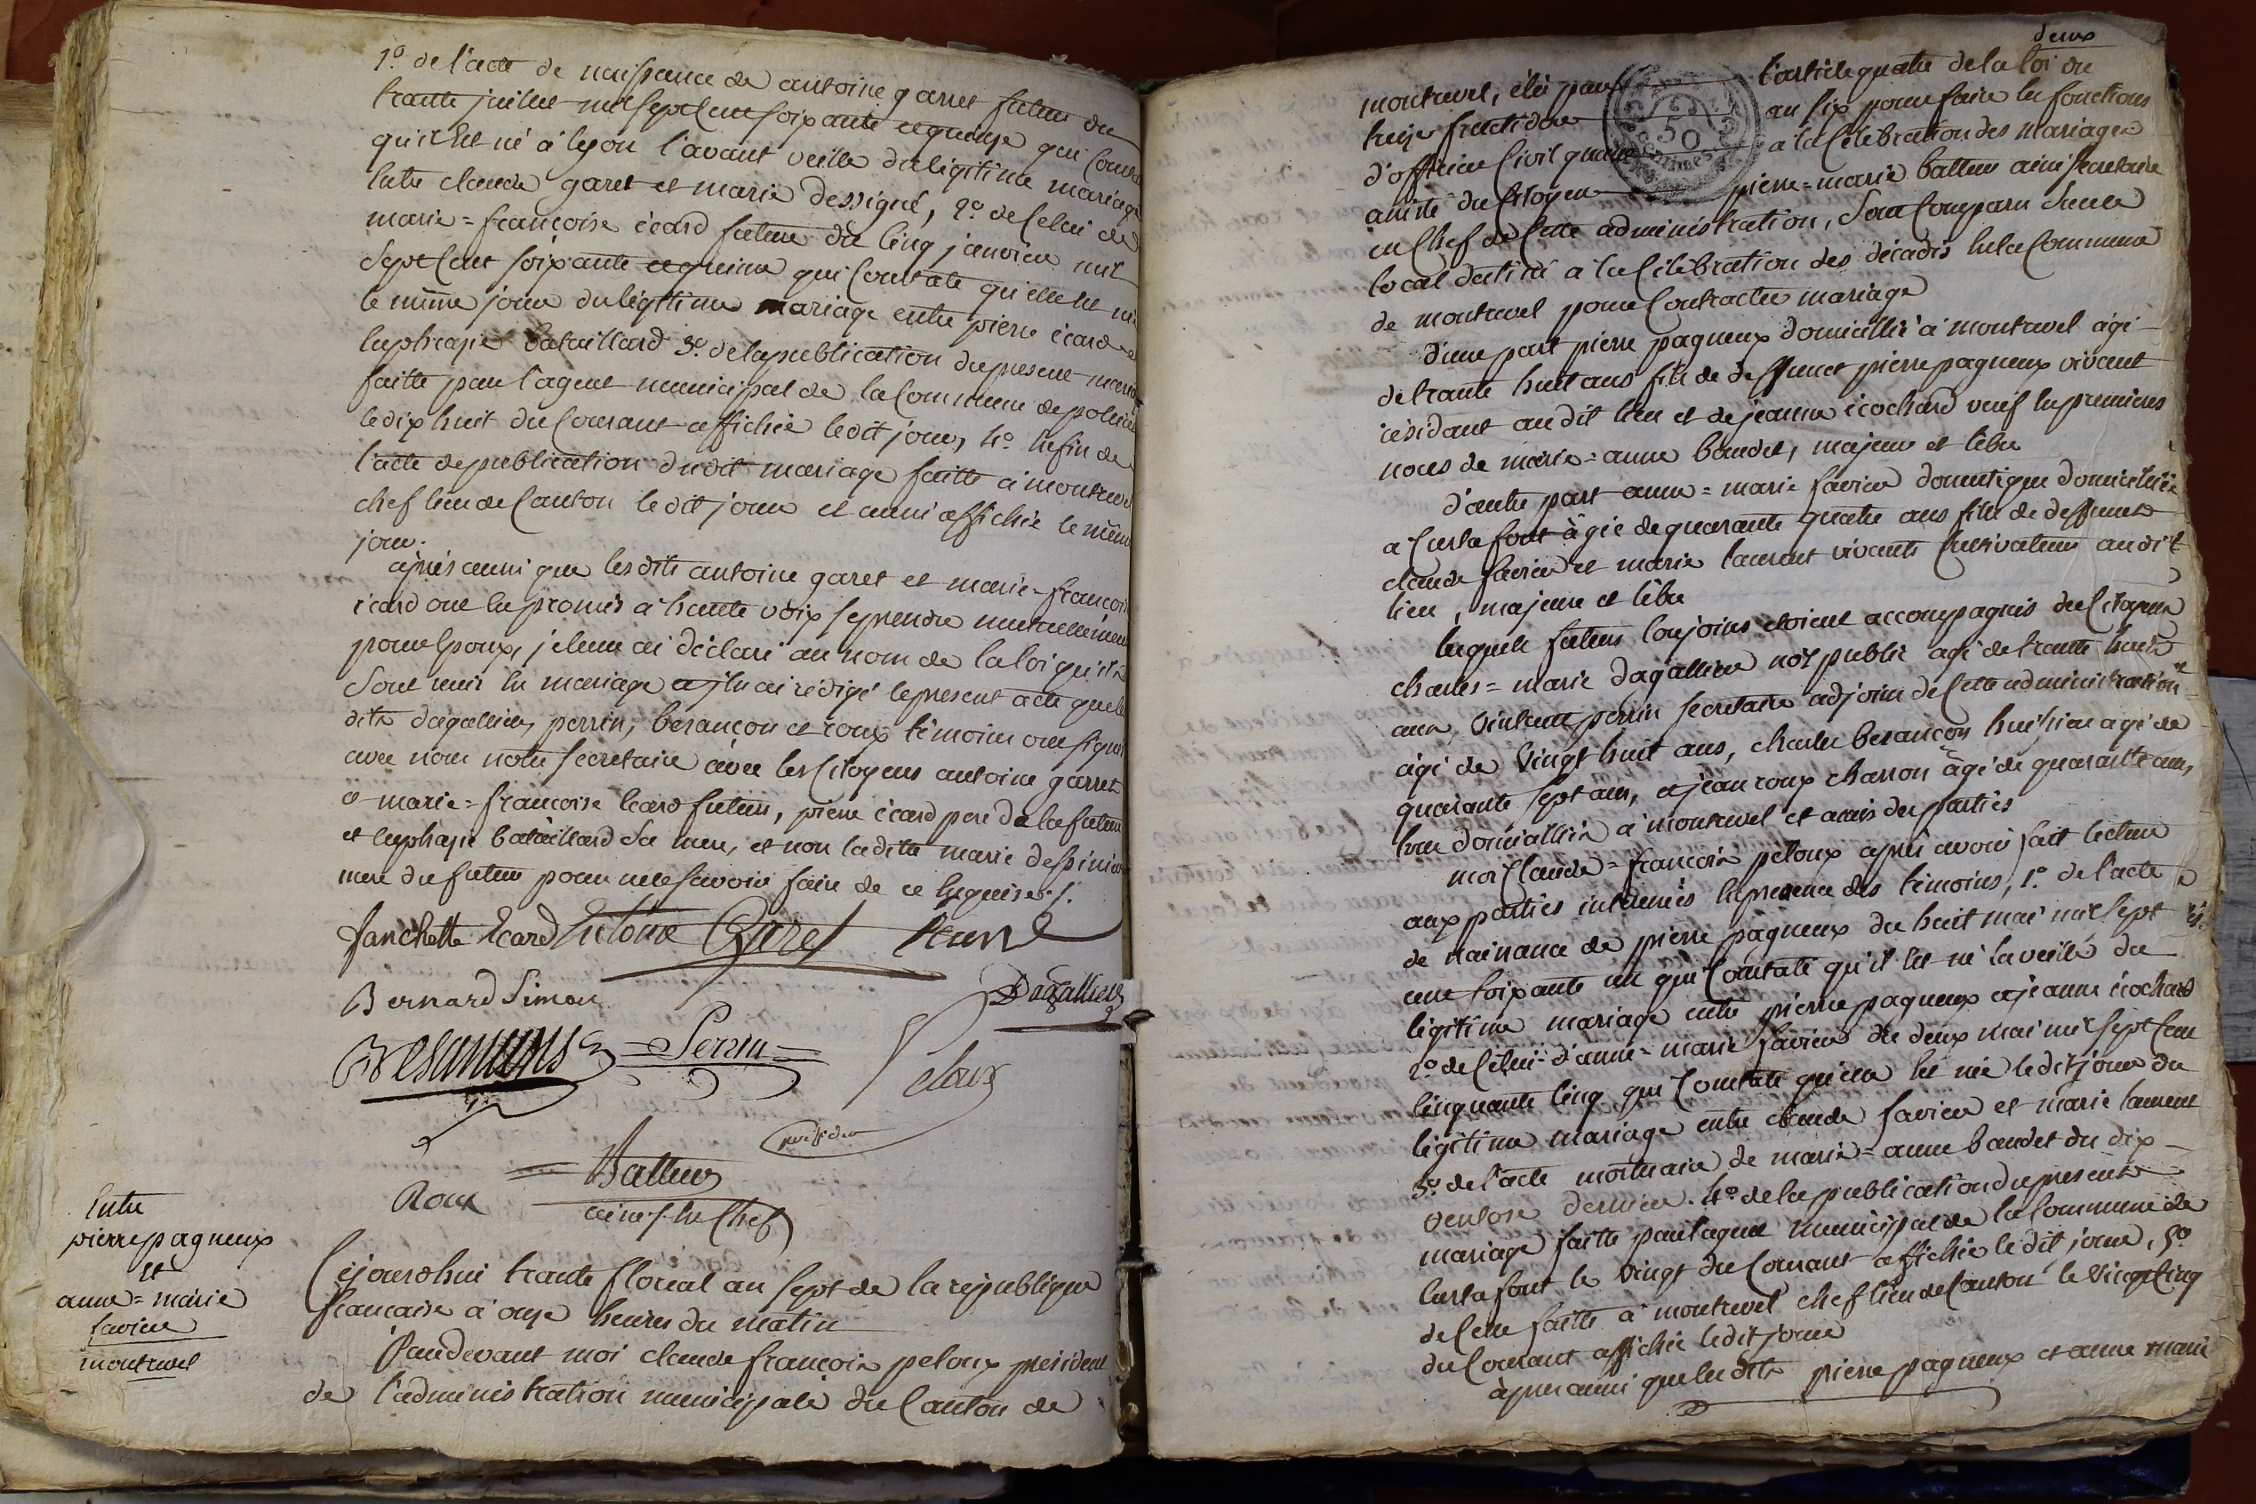 1º. de l'acte de naissance de antoine garret futur du
trante juillet mil sept cent soixante et quinze qui
qu'il est né à lyon l'avant veille du légitime mariage
entre claude garet et marie dessigné, 2º. de celui de
marie = françoise écard future du cinq janvier mil
sept cent soixante et quinze qui constate qu'elle est née
le même jour du légitime mariage entre pierre écard et
euphrasie bataillard 3º. de la publication du present
faitte par l'agent municipal de la Commune de
le dix huit du Courant affichée ledit jour, 4º. enfin de
l'acte de publication dudit mariage faitte à montrevel
chef lieu de Canton le dit jour et aussi affichée le même
jour.
après aussi que lesdits antoine garet et marie = françoise
écard ont eu promis à haute voix se prendre mutuellement
pour Epoux, je leur ai déclaré au nom de la loi qu'ils
Sont unis en mariage et j'en ai rédigé le present acte que les
dits dagallier, perrin, besançon et roux témoins ont signé
avec nous notre secretaire avec les Citoyens antoine garret
et marie = françoise Ecard futurs, pierre écard pere de la future
et euphrasie bataillard sa mere, et non ladite marie
mere du futur pour ne le savoir faire de ce enquise ./.
fanchette Ecard Antoine Garet
Bernard Simon Dagallier
Besançons = Perrin = Peloux
président
Roux = Battur
ainé s. en Chef
Entre
pierre pagneux
et
anne = marie
favier
montrevel
Cejourdhui trante floreal an sept de la république
française à onze heures du matin
Pardevant moi claude françois peloux président
de l'administration municipale du Canton de
deux
montrevel, élu par l'article quatre de la loi du
treize fructidor an six pour faire les fonctions
d'officier Civil quant à la Célébration des mariages
assisté du Citoyen pierre = marie battur ainé secretaire
en Chef de Cette administration, Sont Comparu dans le
local destiné à la Célébration des décadis en la Commune
de montrevel pour Contracter mariage
d'une part pierre pagneux domicillié à montrevel âgé
de trante huit ans fils de deffunt pierre pagneux vivant
résidant audit lieu et de jeanne écochard veuf en premieres
noces de marie = anne baudet, majeur et libre
d'autre part anne = marie favier domestique domicilliée
a Curtafont âgée de quarante quatre ans fille de deffunts
claude favier et marie laurent vivants Cultivateurs audit
lieu, majeure et libre
lesquels futurs Conjoints étoient accompagnés du Citoyen
charles = marie dagallier not. public agé de trante huit
ans, vincent perrin secretaire adjoint de Cette administration
âgé de vingt huit ans, charles besançon huissier agé de
quarante sept ans, et jean roux charron âgé de quarante ans,
tous domicilliés à montrevel et amis des parties
moi Claude = françois peloux après avoir fait lecture
aux parties intéressés en presence des témoins, 1º. de l'acte
de naissance de pierre pagneux du huit mai mil sept
cent soixante un qui Constate qu'il est né la veille du
légitime mariage entre pierre pagneux et jeanne écochard
2º. de Celui d'anne = marie favier du deux mai mil sept cent
cinquante cinq qui Constate qu'elle est née ledit jour du
légitime mariage entre claude favier et marie laurent
3º. de l'acte mortuaire de marie = anne baudet du dix
ventose dernier. 4º. de la publication du present
mariage faitte par l'agent municipal de la Commune de
Curtafont le vingt du Courant affichée ledit jour, 5º.
de Celle faitte à montrevel chef lieu de Canton le vingt cinq
du Courant affichée ledit jour
après aussi que lesdits pierre pagneux et anne marie